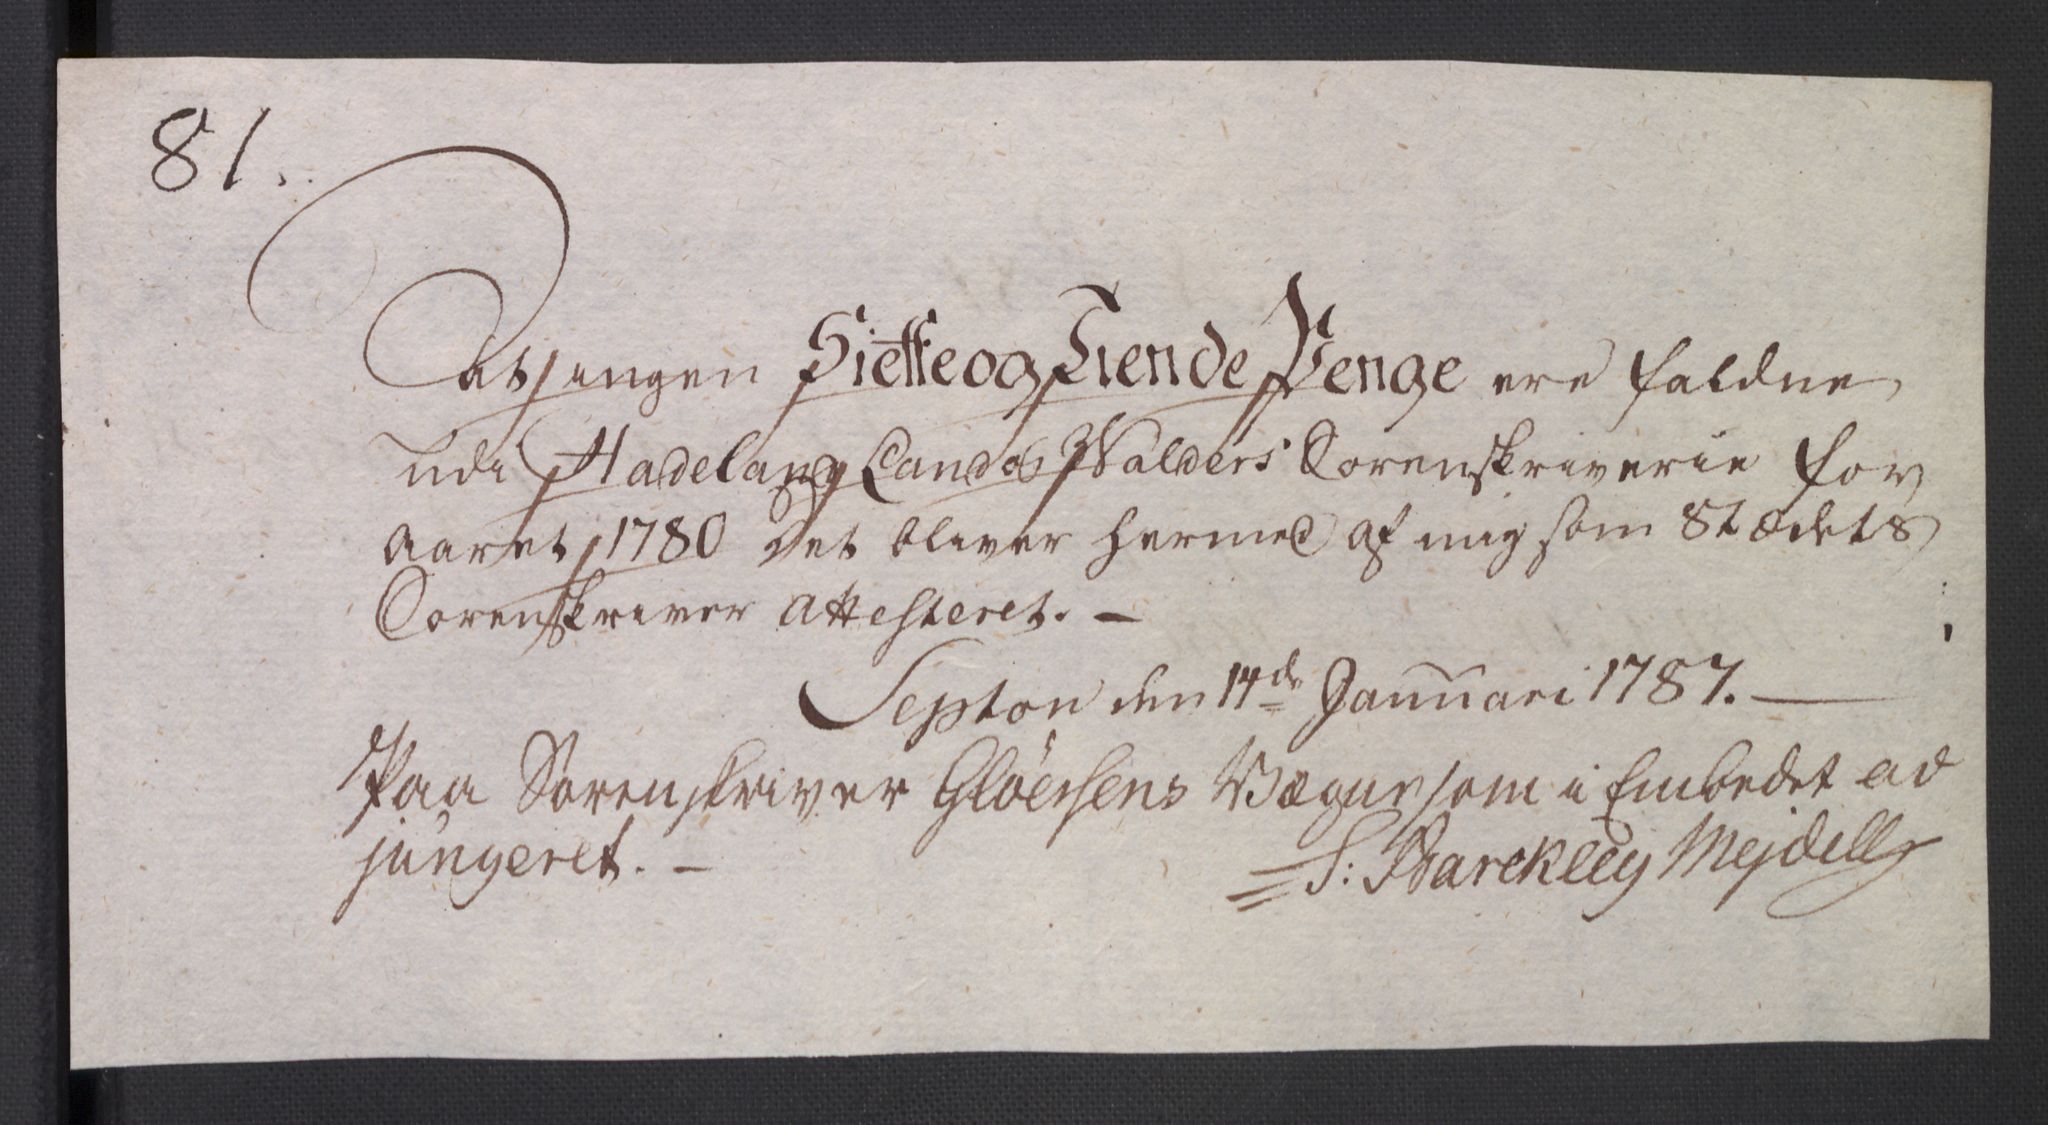 81.
At ingen Siette og Tiende Penge ere faldne
udi Hadeland Land og Walders Sorenskriverie for
Aaret 1780 Det bliver hermed af mig som Stædets
Sorenskriver Attesteret. –
Septon den 14de Januari 1787. –
Paa Sorenskriver Glöersens Vægne som i Embedet ad
jungeret. –
S: Barckley Mejdell